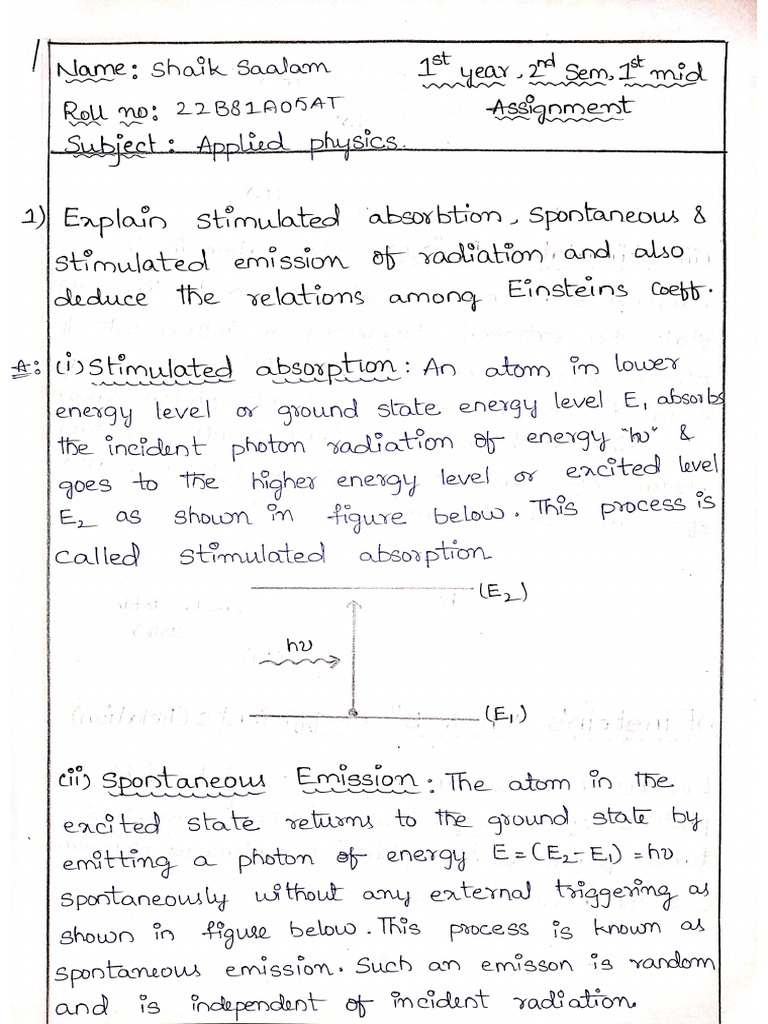 Name: Shaik Saalam
1st year, 2nd Sem, 1st mid
Roll no: 22B81A05AT
Assignment
Subject: Applied physics.
1) Explain stimulated absorbtion, spontaneous &
stimulated emission of radiation and also
deduce the relations among Einsteins Coeff.
A: (i) Stimulated absorption: An atom in lower
energy level or ground state energy level E₁ absorbs
the incident photon radiation of energy "hυ" &
goes to the higher energy level or excited level
E₂ as shown in figure below. This process is
called stimulated absorption
(E₂)
hυ
(E₁)
(ii) Spontaneous Emission: The atom in the
excited state returns to the ground state by
emitting a photon of energy E=(E₂-E₁)=hυ
spontaneously without any external triggering as
shown in figure below. This process is known as
spontaneous emission. Such an emisson is random
and is independent of incident radiation.